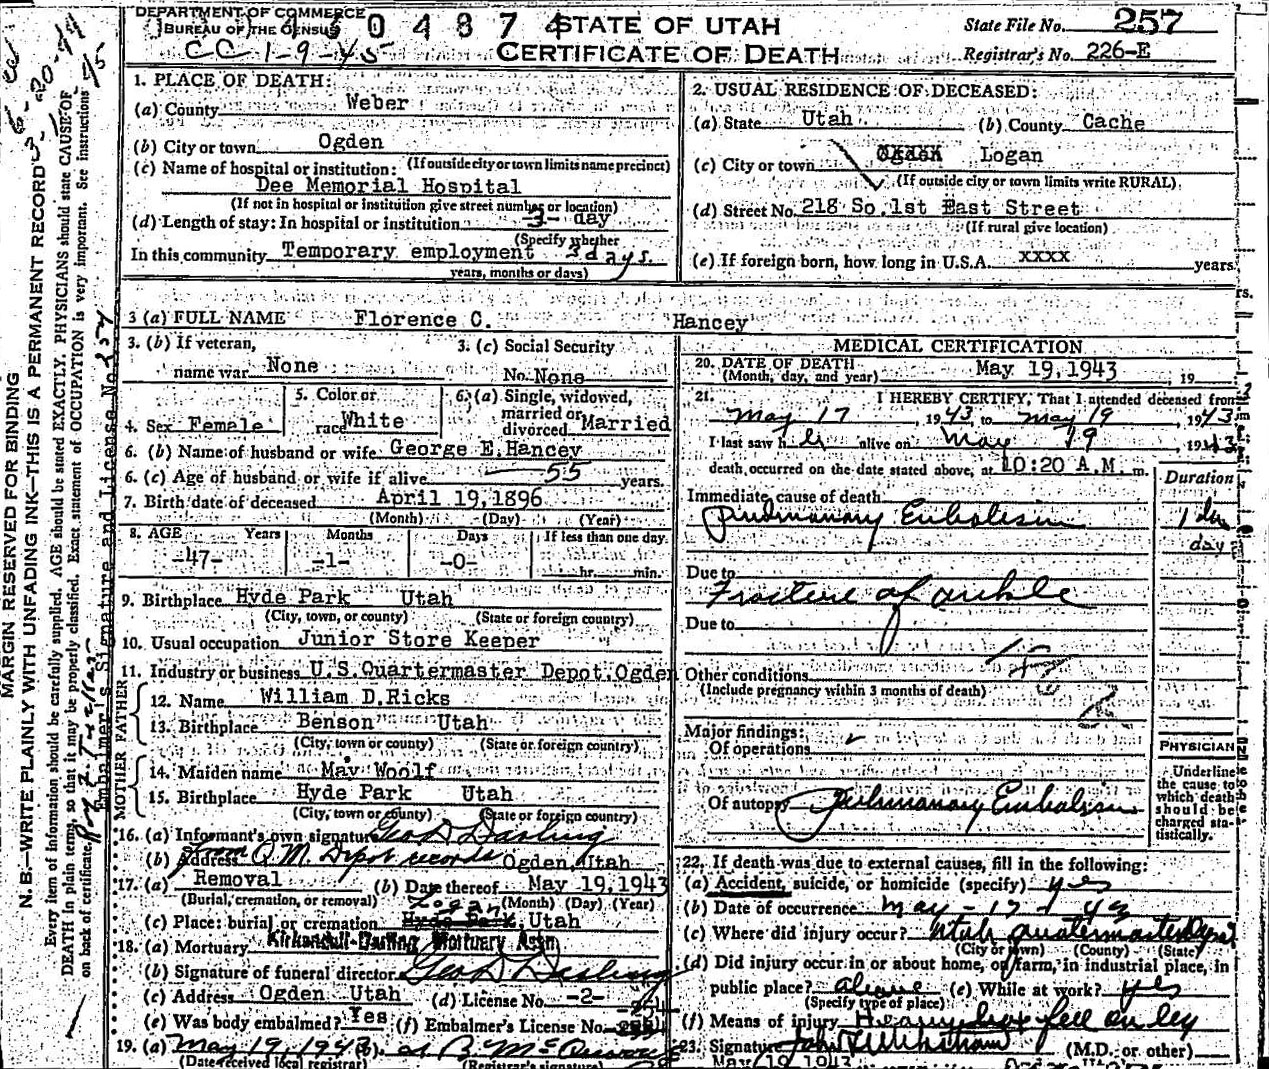 DEPARTMENT OF COMMERCE
BUREAU OF THE CENSUS
0 4 8 7 4
CC 1-9-45
STATE OF UTAH
CERTIFICATE OF DEATH
State File No. 257
Registrar's No. 226-E
MARGIN RESERVED FOR BINDING
N.B.—WRITE PLAINLY WITH UNFADING INK—THIS IS A PERMANENT RECORD
Every item of information should be carefully supplied. AGE should be stated EXACTLY. PHYSICIANS should state CAUSE OF
DEATH in plain terms, so that it may be properly classified. Exact statement of OCCUPATION is very important. See instructions
on back of certificate.
Embalmer's Signature and License No.
1. PLACE OF DEATH:
(a) County Weber
(b) City or town Ogden
(If outside city or town limits name precinct)
(c) Name of hospital or institution:
Dee Memorial Hospital
(If not in hospital or institution give street number or location)
(d) Length of stay: In hospital or institution 3- day
(Specify whether
In this community Temporary employment 3 days.
years, months or days)
2. USUAL RESIDENCE OF DECEASED:
(a) State Utah (b) County Cache
(c) City or town Ogden Logan
(If outside city or town limits write RURAL)
(d) Street No. 218 So. 1st East Street
(If rural give location)
(e) If foreign born, how long in U.S.A. xxxx years.
3 (a) FULL NAME Florence C. Hancey
3. (b) If veteran,
name war None
3. (c) Social Security
No. None
4. Sex Female
5. Color or
race White
6. (a) Single, widowed,
married or
divorced Married
6. (b) Name of husband or wife George E. Hancey
6. (c) Age of husband or wife if alive 55 years.
7. Birth date of deceased April 19, 1896
(Month) (Day) (Year)
8. AGE Years Months Days If less than one day
-47- -1- -0- hr. min.
9. Birthplace Hyde Park Utah
(City, town, or county) (State or foreign country)
10. Usual occupation Junior Store Keeper
11. Industry or business U.S. Quartermaster Depot. Ogden
FATHER
12. Name William D. Ricks
13. Birthplace Benson Utah
(City, town or county) (State or foreign country)
MOTHER
14. Maiden name May Woolf
15. Birthplace Hyde Park Utah
(City, town or county) (State or foreign country)
16. (a) Informant's own signature Geo D Darling
(b) Address from Q.M. Depot records Ogden, Utah
17. (a) Removal (b) Date thereof May 19, 1943
(Burial, cremation, or removal) (Month) (Day) (Year)
Logan
(c) Place: burial or cremation Hyde Park, Utah
18. (a) Mortuary Kirkendall-Darling Mortuary Assn
(b) Signature of funeral director Geo D Darling
(c) Address Ogden Utah (d) License No. -2-
(e) Was body embalmed? Yes (f) Embalmer's License No.
19. (a) May 19, 1943 (b)
(Date received local registrar) (Registrar's signature)
MEDICAL CERTIFICATION
20. DATE OF DEATH May 19, 1943, 19
(Month, day, and year)
21. I HEREBY CERTIFY, That I attended deceased from
May 17, 1943, to May 19, 1943.
I last saw her alive on May 19, 1943
death occurred on the date stated above, at 10:20 A.M. m.
Duration
Immediate cause of death
Pulmonary Embolism 1 day
day
Due to
Fracture of ankle
Due to
Other conditions
(Include pregnancy within 3 months of death)
Major findings:
Of operations
Of autopsy Pulmonary Embolism
PHYSICIAN
Underline
the cause to
which death
should be
charged sta-
tistically.
22. If death was due to external causes, fill in the following:
(a) Accident, suicide, or homicide (specify) yes
(b) Date of occurrence May - 17 - 43
(c) Where did injury occur? Utah Quartermaster Depot
(City or town) (County) (State)
(d) Did injury occur in or about home, on farm, in industrial place, in
public place? above (e) While at work? yes
(Specify type of place)
(f) Means of injury Heavy box fell on leg
23. Signature (M.D. or other)
May 19 1943